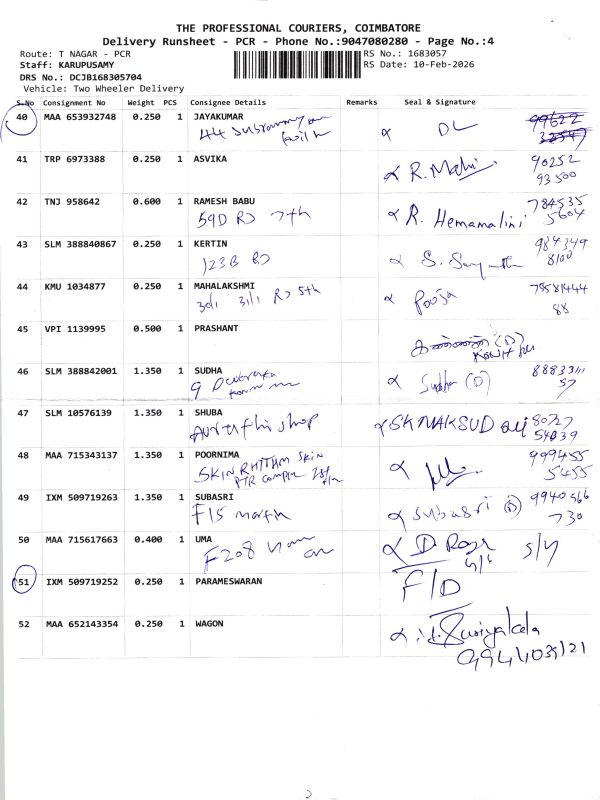 THE PROFESSIONAL COURIERS, COIMBATORE
Delivery Runsheet - PCR - Phone No.:9047080280 - Page No.:4
Route: T NAGAR - PCR
RS No.: 1683057
Staff: KARUPUSAMY
RS Date: 10-Feb-2026
DRS No.: DCJB168305704
Vehicle: Two Wheeler Delivery
S.No Consignment No Weight PCS Consignee Details Remarks Seal & Signature
40 MAA 653932748 0.250 1 JAYAKUMAR
44 DL 99622
41 TRP 6973388 0.250 1 ASVIKA
R. Mahi 90252
93500
42 TNJ 958642 0.600 1 RAMESH BABU
59D RD 7th R. Hemamalini 784535
5604
43 SLM 388840867 0.250 1 KERTIN
123B RD S. 984349
8100
44 KMU 1034877 0.250 1 MAHALAKSHMI
301 311 RD 5th Pooja
88
45 VPI 1139995 0.500 1 PRASHANT
(D)
46 SLM 388842001 1.350 1 SUDHA
9 Sudha (D)
57
47 SLM 10576139 1.350 1 SHUBA
shop SK MAKSUD ali 80727
54839
48 MAA 715343137 1.350 1 POORNIMA
SKIN RHYTHM SKIN 999455
PTR 5455
49 IXM 509719263 1.350 1 SUBASRI
F15 Subasri (D) 9940566
730
50 MAA 715617663 0.400 1 UMA
F208 D. Roja
51 IXM 509719252 0.250 1 PARAMESWARAN
F/D
52 MAA 652143354 0.250 1 WAGON
Suriyakala